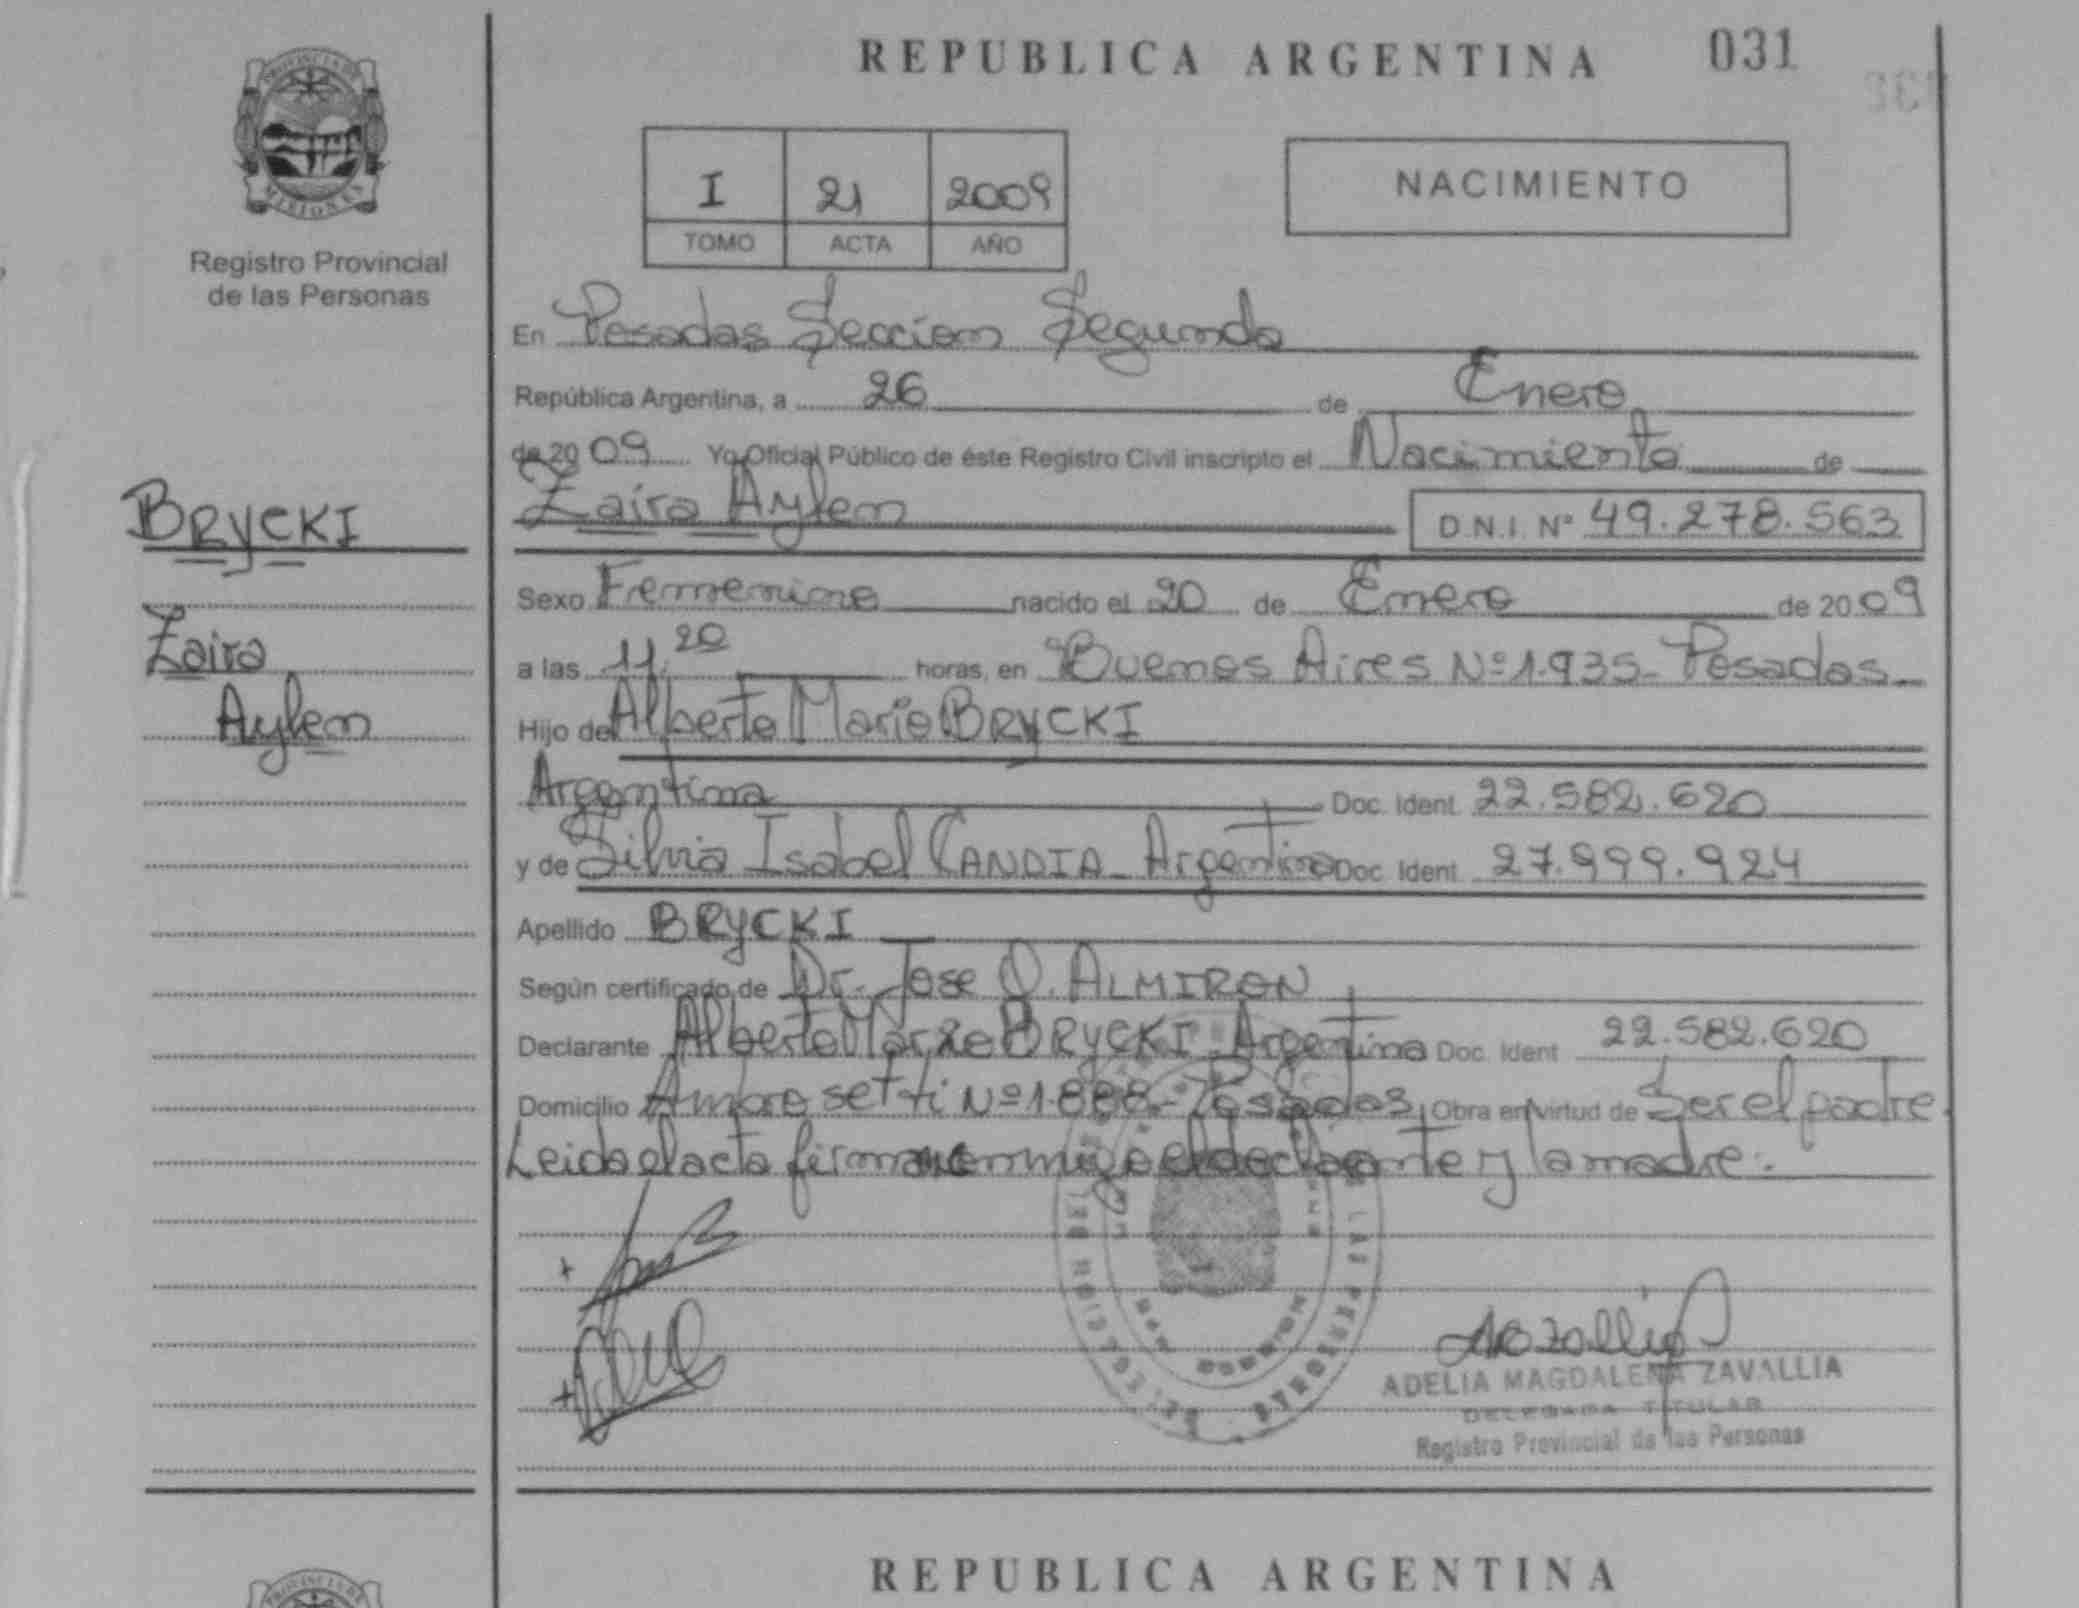 REPUBLICA ARGENTINA 031
PROVINCIA DE
MISIONES
Registro Provincial
de las Personas
I 21 2009
TOMO ACTA AÑO
NACIMIENTO
En Posadas Sección Segunda
República Argentina, a 26 de Enero
de 2009 Yo Oficial Público de éste Registro Civil inscripto el Nacimiento de
Zaira Aylen D.N.I. Nº 49.278.563
BRYCKI
Zaira
Aylen
Sexo Femenino nacido el 20 de Enero de 2009
a las 11.20 horas, en Buenos Aires Nº 1.935- Posadas-
Hijo de Alberto Mario BRYCKI
Argentina Doc. Ident. 22.582.620
y de Silvia Isabel CANDIA- Argentina Doc. Ident. 27.999.924
Apellido BRYCKI
Según certificado de Dr. Jose O. ALMIRON
Declarante Alberto Mario BRYCKI- Argentina Doc. Ident 22.582.620
Domicilio Ambrosetti Nº 1.888- Posadas, Obra en virtud de Ser el padre.
Leida el acta firman conmigo el declarante y la madre.
ADELIA MAGDALENA ZAVALLIA
DELEGADA TITULAR
Registro Provincial de las Personas
REPUBLICA ARGENTINA